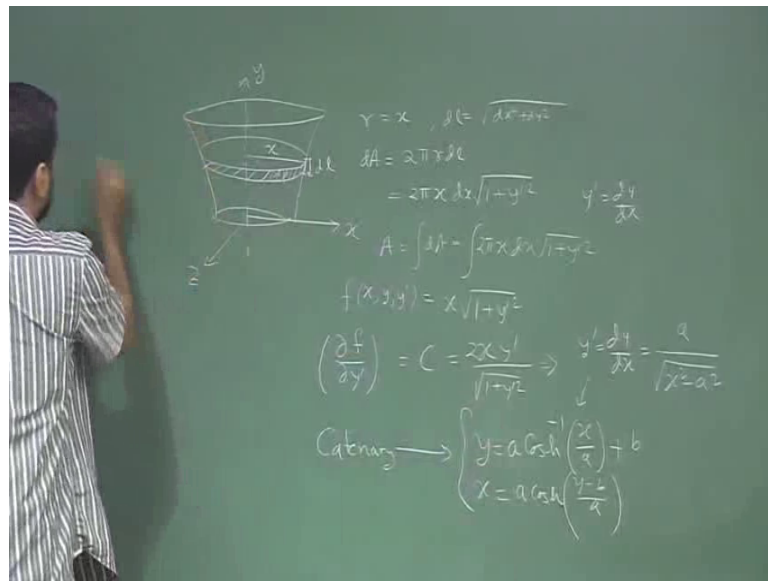 y
x
dl
x
z
r = x , dl = √dx²+dy²
dA = 2πrdl
= 2πx dx √1+y'² y' = dy/dx
A = ∫dA = ∫2πx dx √1+y'²
f(x,y,y') = x√1+y'²
(∂f/∂y') = C = 2xy'/√1+y'² ⇒ y' = dy/dx = a/√x²-a²
Catenary → { y = a cosh⁻¹(x/a) + b
x = a cosh((y-b)/a)